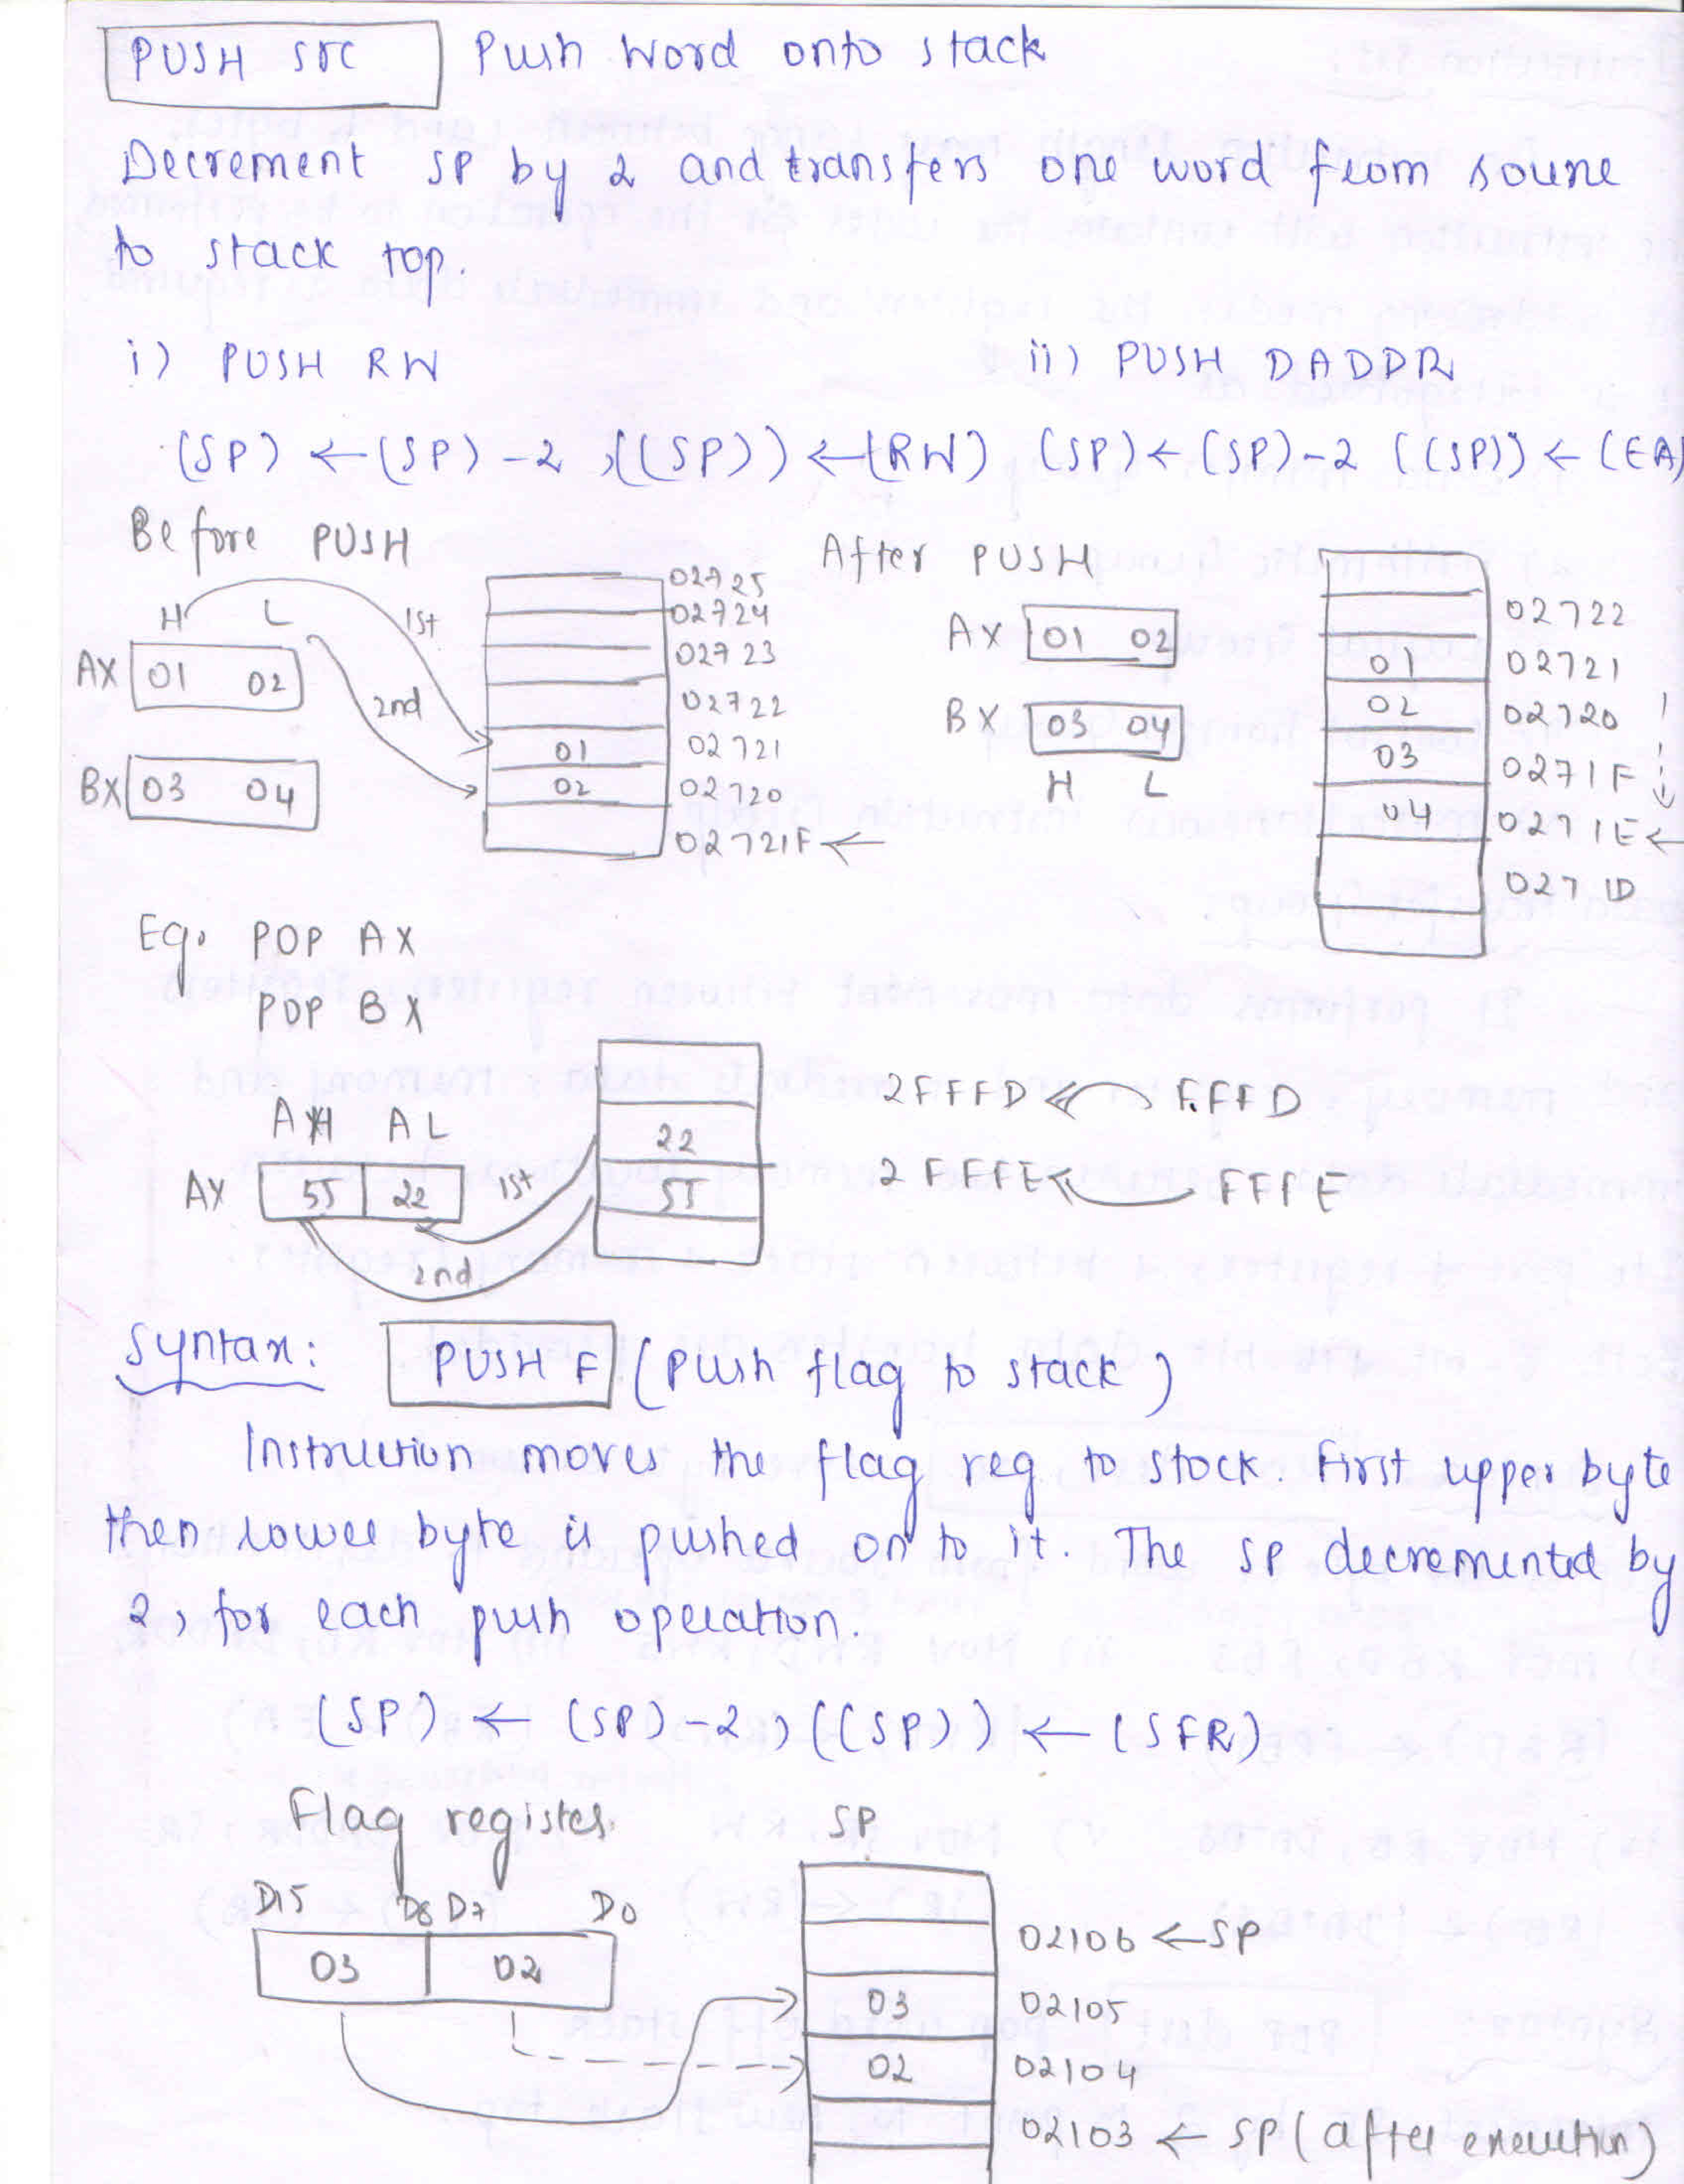 PUSH src Push Word onto stack
Decrement SP by 2 and transfers one word from source
to stack top.
i) PUSH RW ii) PUSH DADDR
(SP) ← (SP) - 2 , ((SP)) ← (RW) (SP) ← (SP) - 2 ((SP)) ← (EA)
Before PUSH
H L
1st
2nd
AX 01 02
BX 03 04
02725
02724
02723
02722
01 02721
02 02720
02721F ←
After PUSH
AX 01 02
BX 03 04
H L
02722
01 02721
02 02720
03 0271F
04 0271E ←
0271D
Eg. POP AX
POP BX
AH AL
AX 55 22
1st
2nd
22 2FFFD FFFD
55 2FFFE FFFE
Syntax: PUSH F (Push flag to stack)
Instruction moves the flag reg to stack. First upper byte
then lower byte is pushed on to it. The SP decremented by
2, for each push operation.
(SP) ← (SP) - 2, ((SP)) ← (SFR)
Flag register SP
D15 D8 D7 D0
03 02
02106 ← SP
03 02105
02 02104
02103 ← SP (after execution)